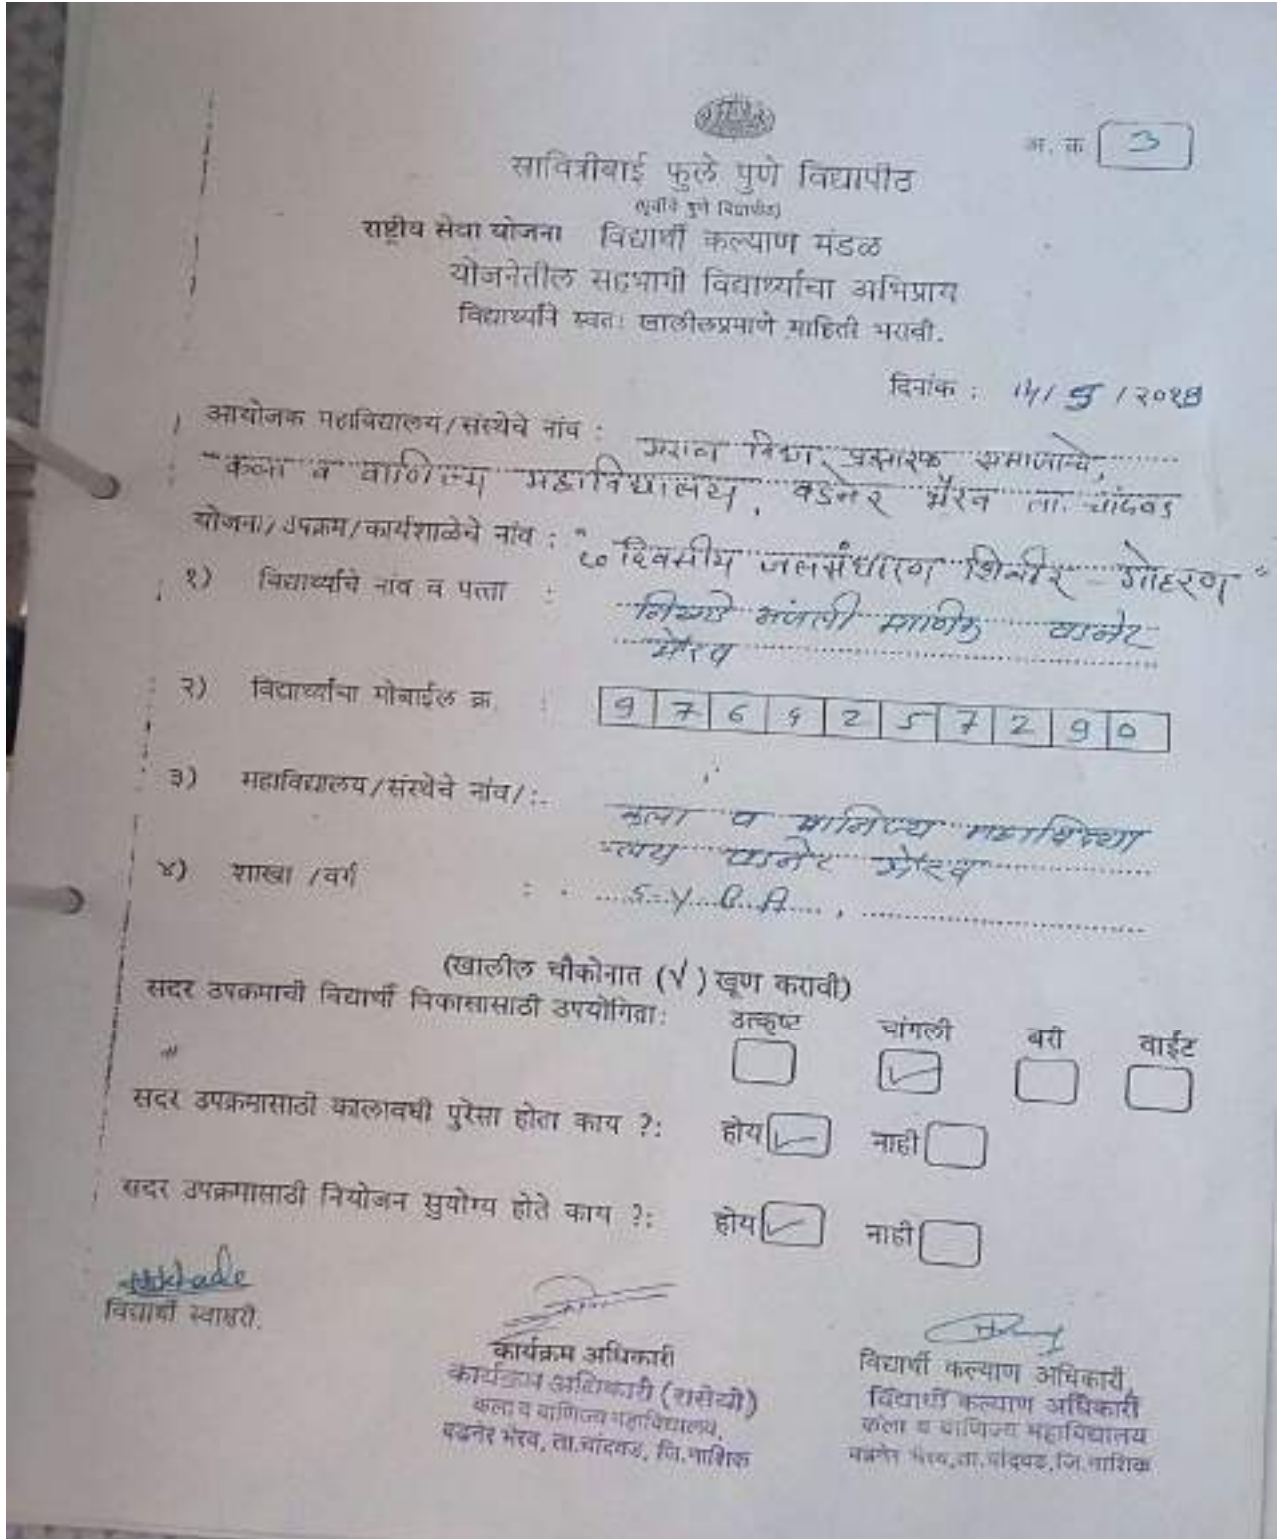 अ. क्र 3
सावित्रीबाई फुले पुणे विद्यापीठ
(पूर्वीचे पुणे विद्यापीठ)
राष्ट्रीय सेवा योजना विद्यार्थी कल्याण मंडळ
योजनेतील सहभागी विद्यार्थ्यांचा अभिप्राय
विद्यार्थ्याने स्वतः खालीलप्रमाणे माहिती भरावी.
दिनांक :
आयोजक महाविद्यालय/संस्थेचे नांव : मराठा विद्या प्रसारक समाजाचे,
कला व वाणिज्य महाविद्यालय, वडनेर भैरव ता. चांदवड
योजना/उपक्रम/कार्यशाळेचे नांव : दिवसीय जलसंधारण शिबीर - गोहरण"
१) विद्यार्थ्याचे नांव व पत्ता : माणिक वडनेर
भैरव
२) विद्यार्थ्याचा मोबाईल क्र. :
३) महाविद्यालय/संस्थेचे नांव/:- कला व वानिज्य महाविध्या
-लय वडनेर भैरव
४) शाखा /वर्ग : S.Y.B.A.
(खालील चौकोनात (√) खूण करावी)
सदर उपक्रमाची विद्यार्थी विकासासाठी उपयोगिता: उत्कृष्ट चांगली बरी वाईट
सदर उपक्रमासाठी कालावधी पुरेसा होता काय ?: होय नाही
सदर उपक्रमासाठी नियोजन सुयोग्य होते काय ?: होय नाही
विद्यार्थी स्वाक्षरी.
कार्यक्रम अधिकारी
कार्यक्रम अधिकारी (रासेयो)
कला व वाणिज्य महाविद्यालय,
वडनेर भैरव, ता.चांदवड, जि.नाशिक
विद्यार्थी कल्याण अधिकारी,
विद्यार्थी कल्याण अधिकारी
कला व वाणिज्य महाविद्यालय
वडनेर भैरव,ता.चांदवड,जि.नाशिक